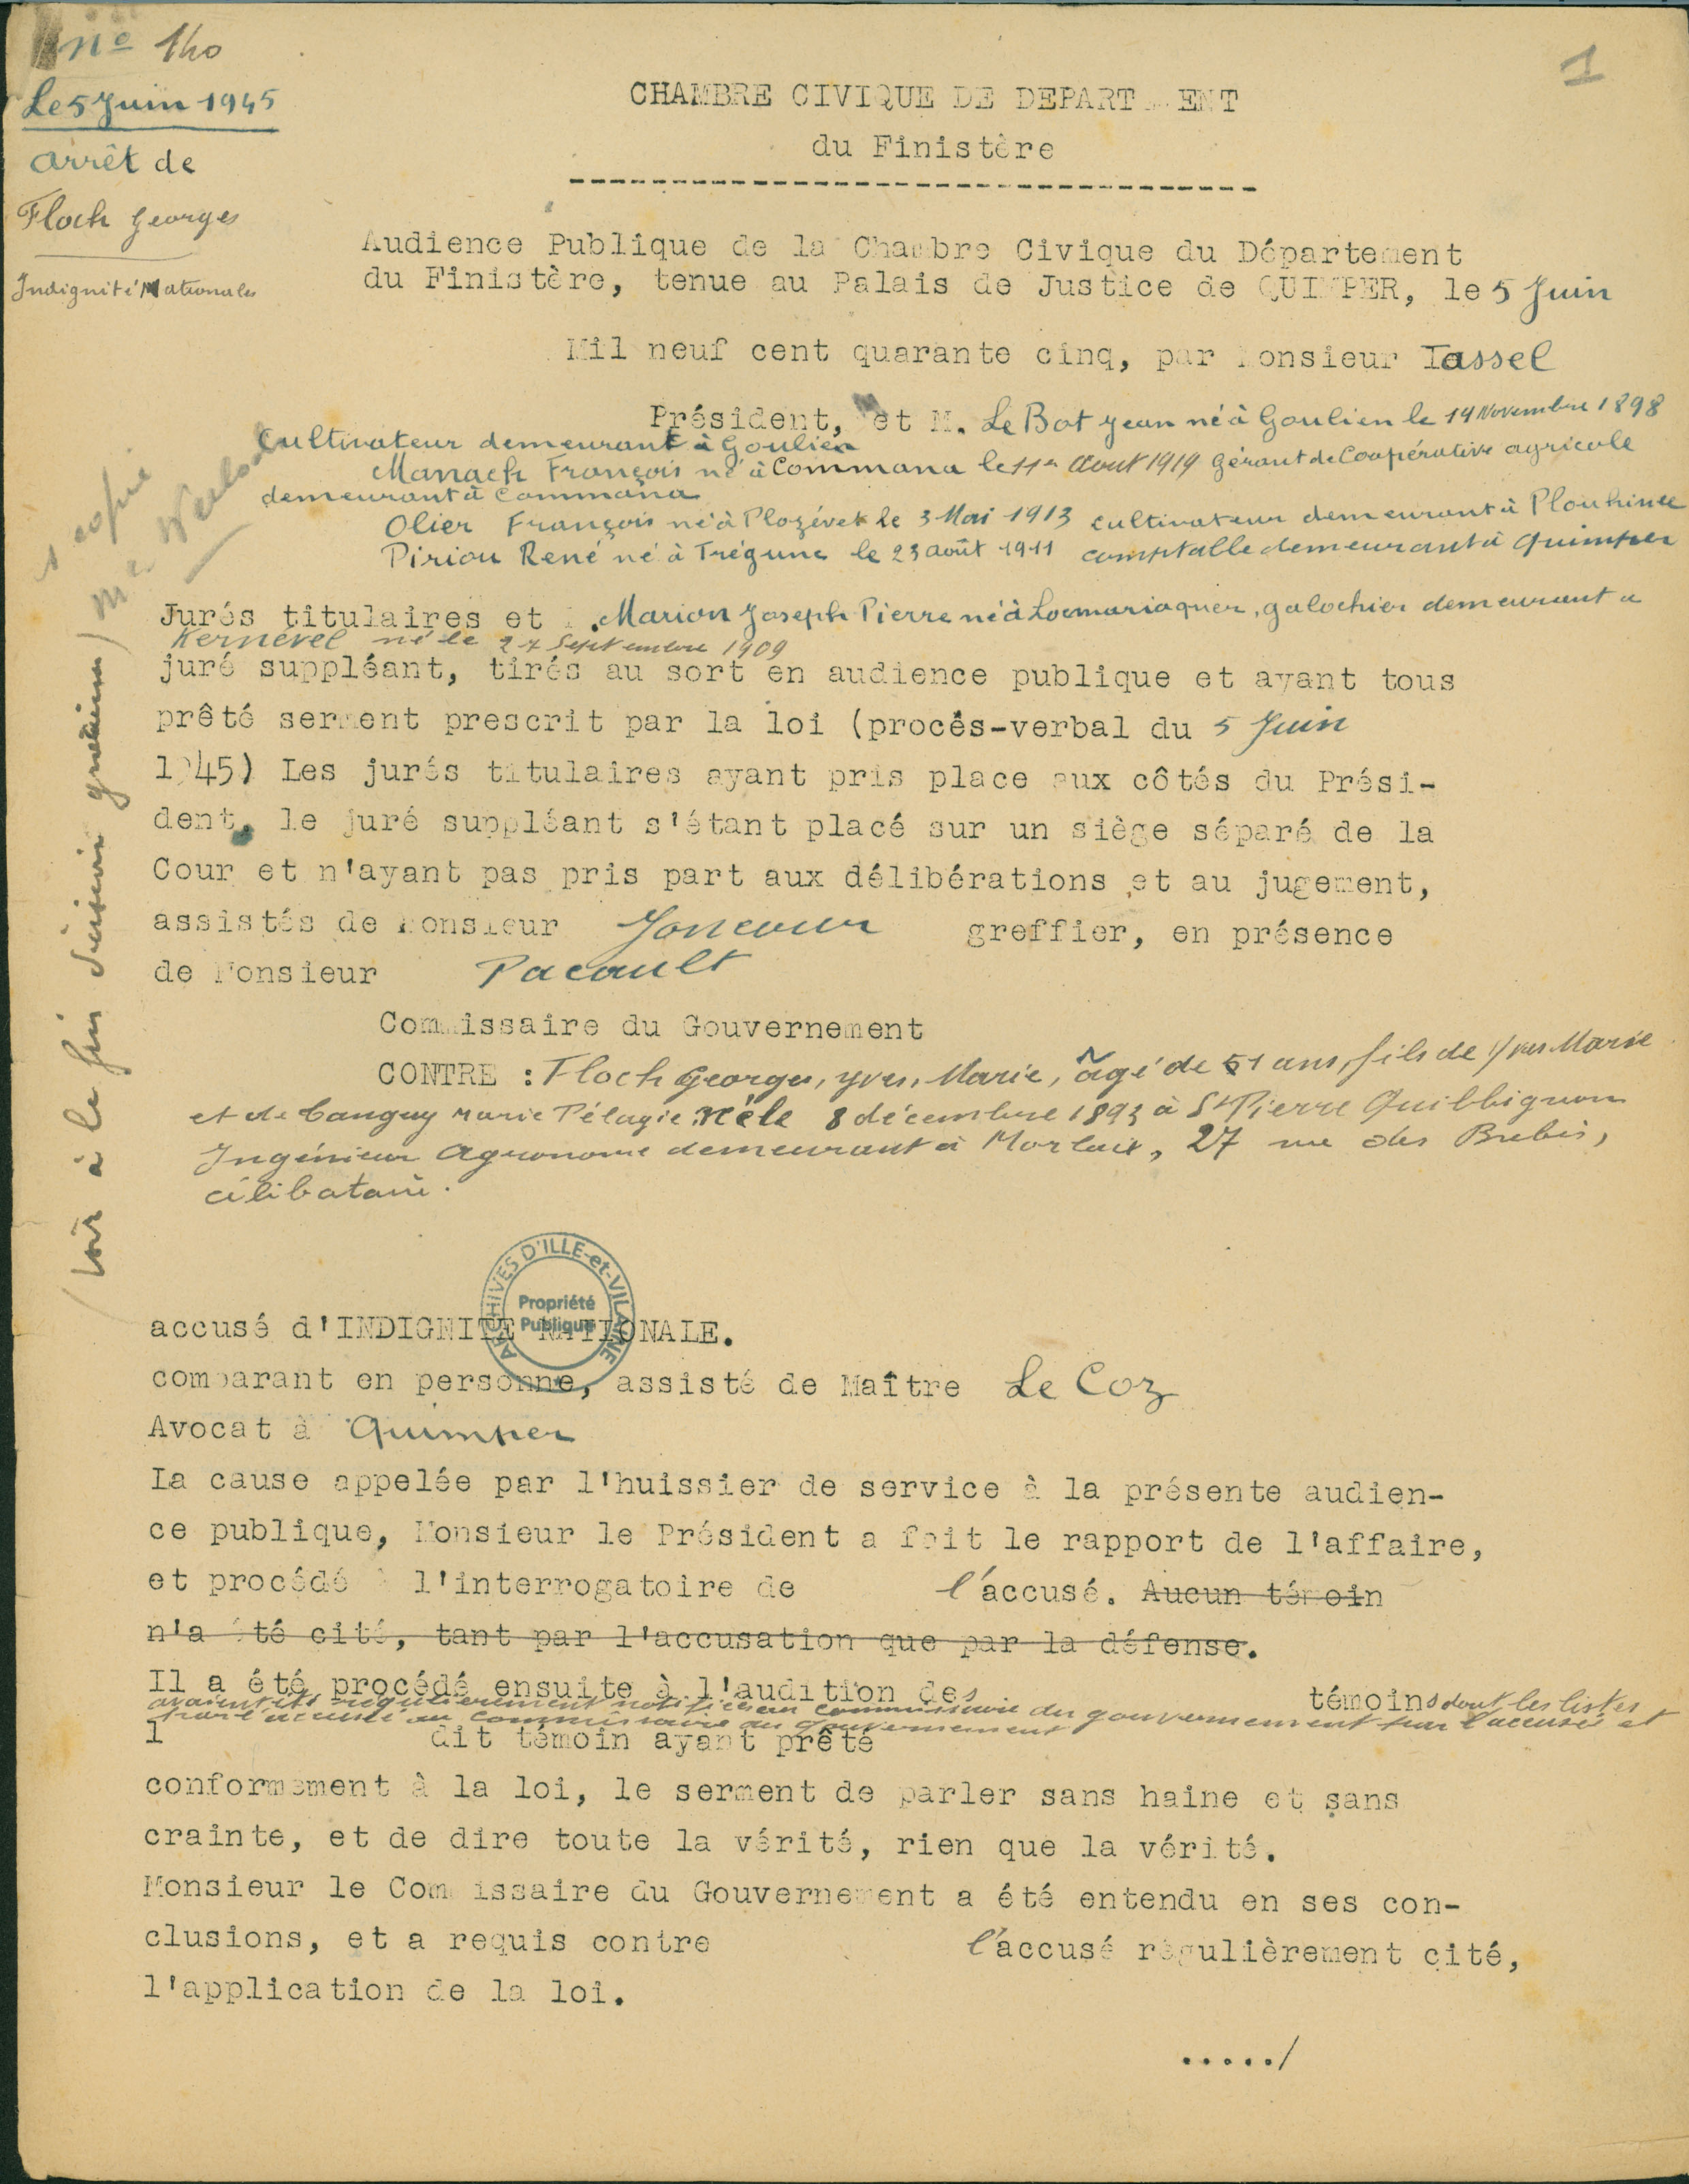 n° 140
1
Le 5 Juin 1945
arrêt de
Floch Georges
Indignité Nationale
CHAMBRE CIVIQUE DE DEPARTEMENT
du Finistère
Audience Publique de la Chambre Civique du Département
du Finistère, tenue au Palais de Justice de QUIMPER, le 5 Juin
Mil neuf cent quarante cinq, par Monsieur Tassel
Président, et M. Le Bot Jean né à Goulien le 14 Novembre 1898
Cultivateur demeurant à Goulien
Manach François né à Commana le 11 Aout 1919 Gérant de Coopérative agricole
demeurant à Commana
Olier François né à Plozévet le 3 Mai 1913 cultivateur demeurant à Plouhinec
Piriou René né à Trégunc le 23 août 1911 comptable demeurant à Quimper
Jurés titulaires et M. Marion Joseph Pierre né à Locmariaquer, galochier demeurant a
Kernevel né le 27 Septembre 1909
juré suppléant, tirés au sort en audience publique et ayant tous
prêté serment prescrit par la loi (procès-verbal du 5 Juin
1945) Les jurés titulaires ayant pris place aux côtés du Prési-
dent, le juré suppléant s'étant placé sur un siège séparé de la
Cour et n'ayant pas pris part aux délibérations et au jugement,
assistés de Monsieur Joncour greffier, en présence
de Monsieur Pacault
Commissaire du Gouvernement
CONTRE : Floch Georges, Yves, Marie, âgé de 51 ans, fils de Yves Marie
et de Tanguy Marie Pélagie Né le 8 décembre 1893 à St Pierre Quilbignon
Ingénieur Agronome demeurant à Morlaix, 27 rue des Brebis,
célibataire.
1 copie
Me
voir à la fin décision
ARCHIVES D'ILLE-et-VILAINE
Propriété
Publique
accusé d'INDIGNITE NATIONALE.
comparant en personne, assisté de Maître Le Coz
Avocat à Quimper
La cause appelée par l'huissier de service à la présente audien-
ce publique, Monsieur le Président a fait le rapport de l'affaire,
et procédé à l'interrogatoire de l'accusé. Aucun témoin
n'a été cité, tant par l'accusation que par la défense.
Il a été procédé ensuite à l'audition des témoins dont les listes
avaient été régulièrement notifiées au commissaire du gouvernement par l'accusé et
par l'accusé au commissaire du gouvernement
l dit témoin ayant prêté
conformement à la loi, le serment de parler sans haine et sans
crainte, et de dire toute la vérité, rien que la vérité.
Monsieur le Commissaire du Gouvernement a été entendu en ses con-
clusions, et a requis contre l'accusé régulièrement cité,
l'application de la loi.
...../